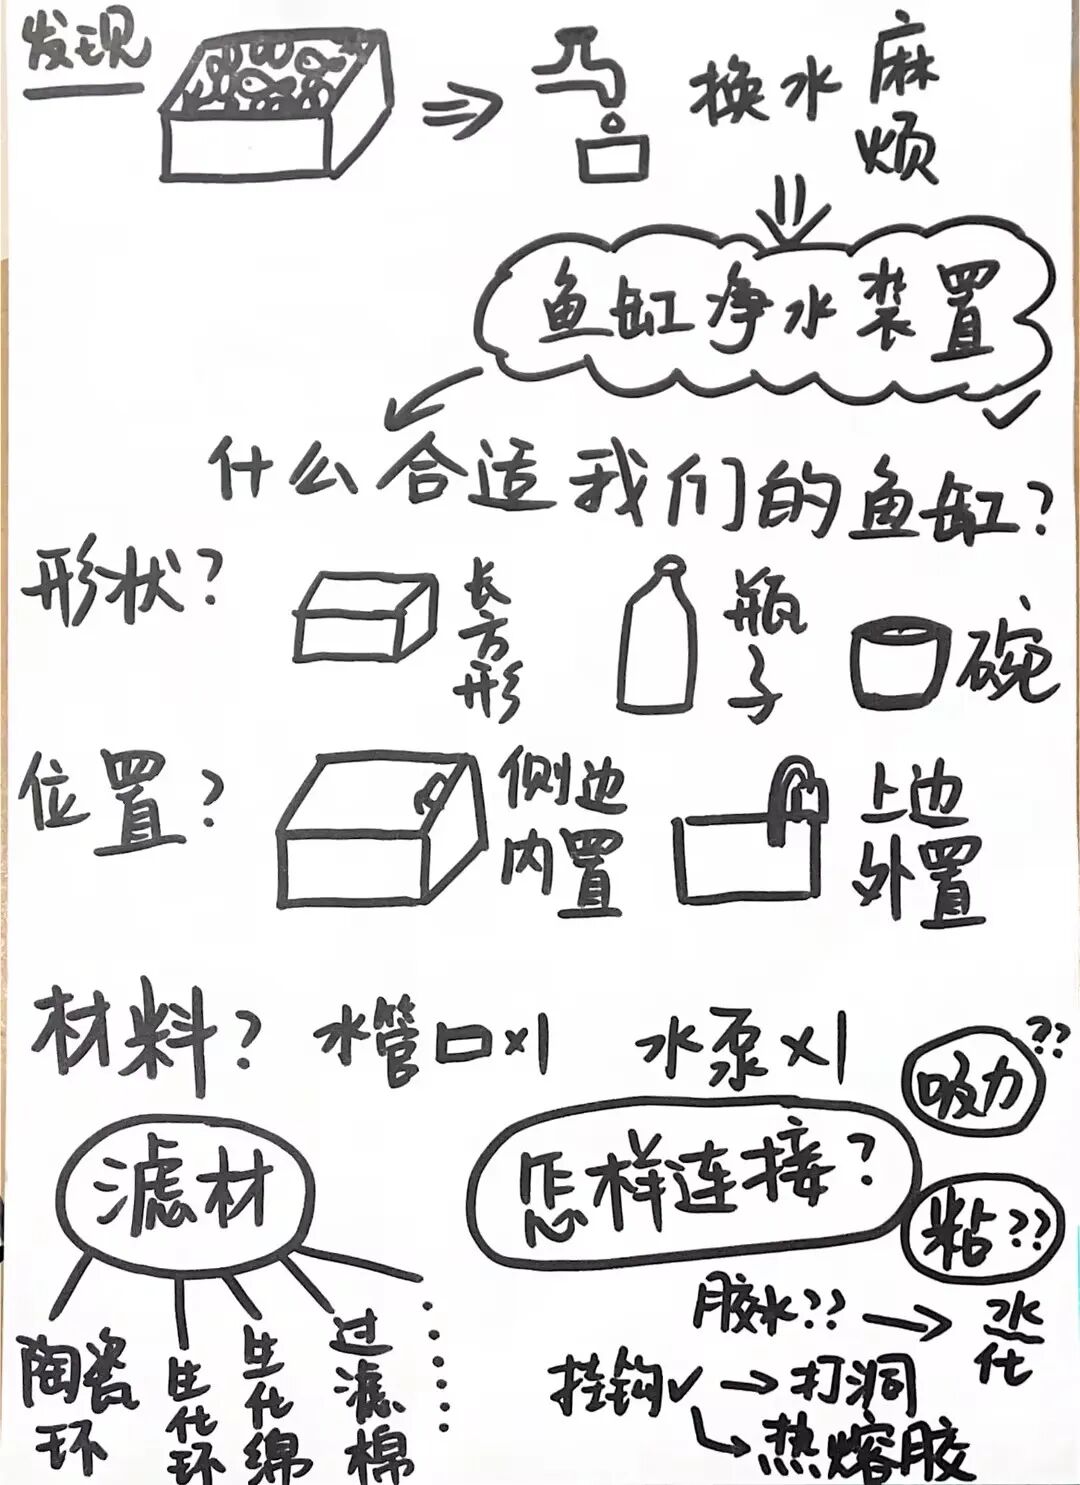 发现
换水麻烦
鱼缸净水装置
什么合适我们的鱼缸?
形状?
长方形
瓶子
碗
位置?
侧边内置
上边外置
材料?
水管口×1
水泵×1
吸力??
滤材
怎样连接?
粘??
陶瓷环
生化环
生化绵
过滤棉
胶水??
水化
挂钩✓
打洞
热熔胶